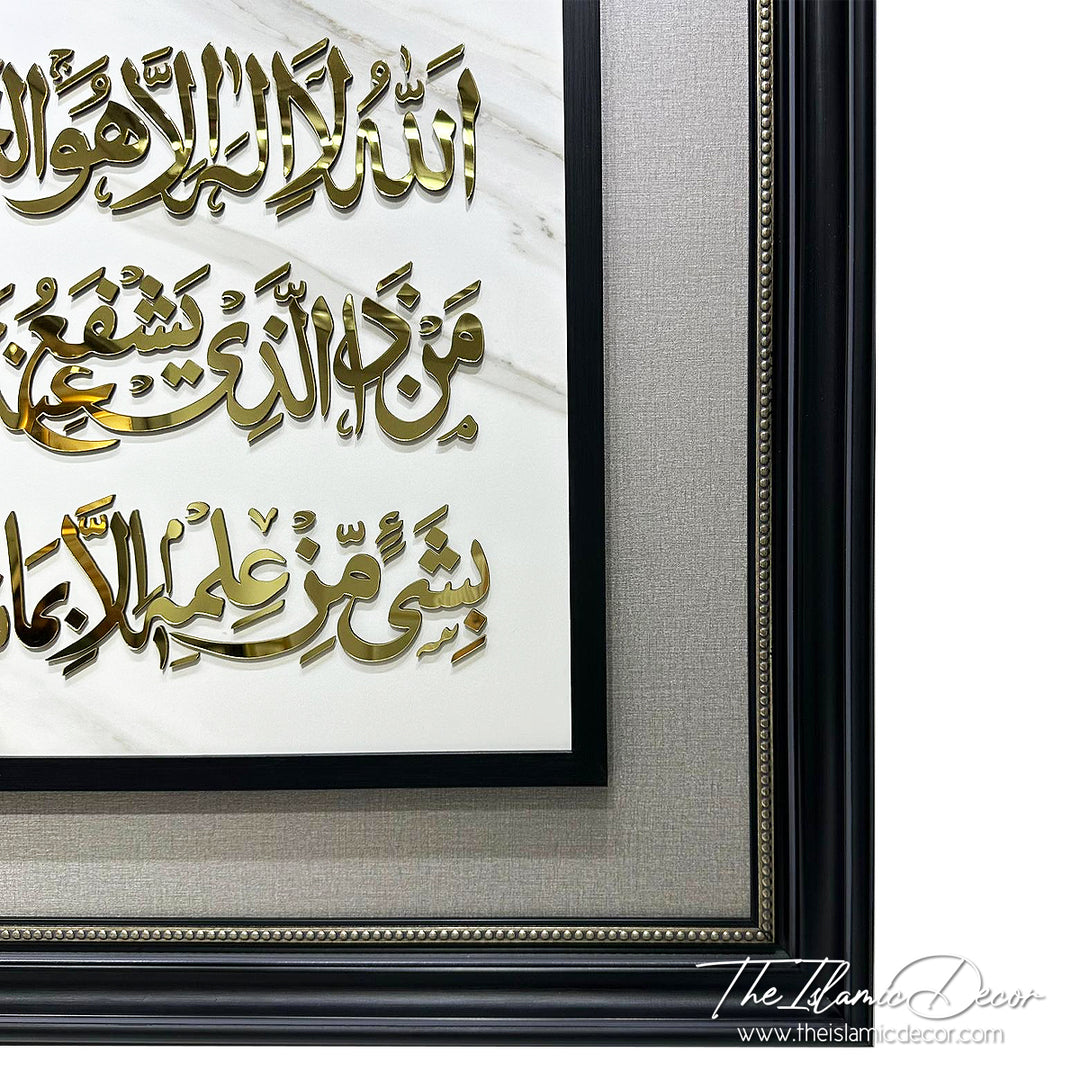 اَللّٰهُ لَاۤ اِلٰهَ اِلَّا هُوَۚ
مَنْ ذَا الَّذِیْ یَشْفَعُ
بِشَیْءٍ مِّنْ عِلْمِهٖۤ اِلَّا بِمَا
The Islamic Decor
www.theislamicdecor.com